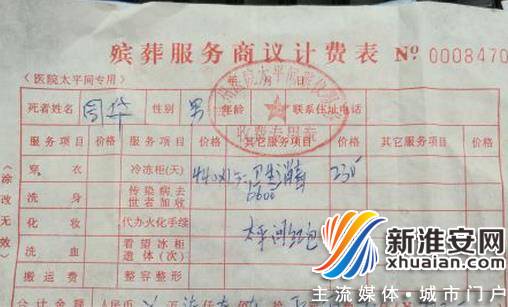 殡葬服务商议计费表 No 0008470
(医院太平间专用) 年 月 日
死者姓名 周华 性别 男 年龄 联系住址电话
服务项目 价格 服务项目 价格 其它服务项目 价格 其它服务项目 价格
穿衣 冷冻柜(天) 卫生消毒 230
洗身 传染病去世者加收 6600
化妆 代办火化手续 太平间红包
洗血 看望冰柜遗体(次)
搬运费 整容整形
合计金额 人民币
(涂改无效)
收费专用章
新淮安网
xhuaian.com
主流媒体·城市门户